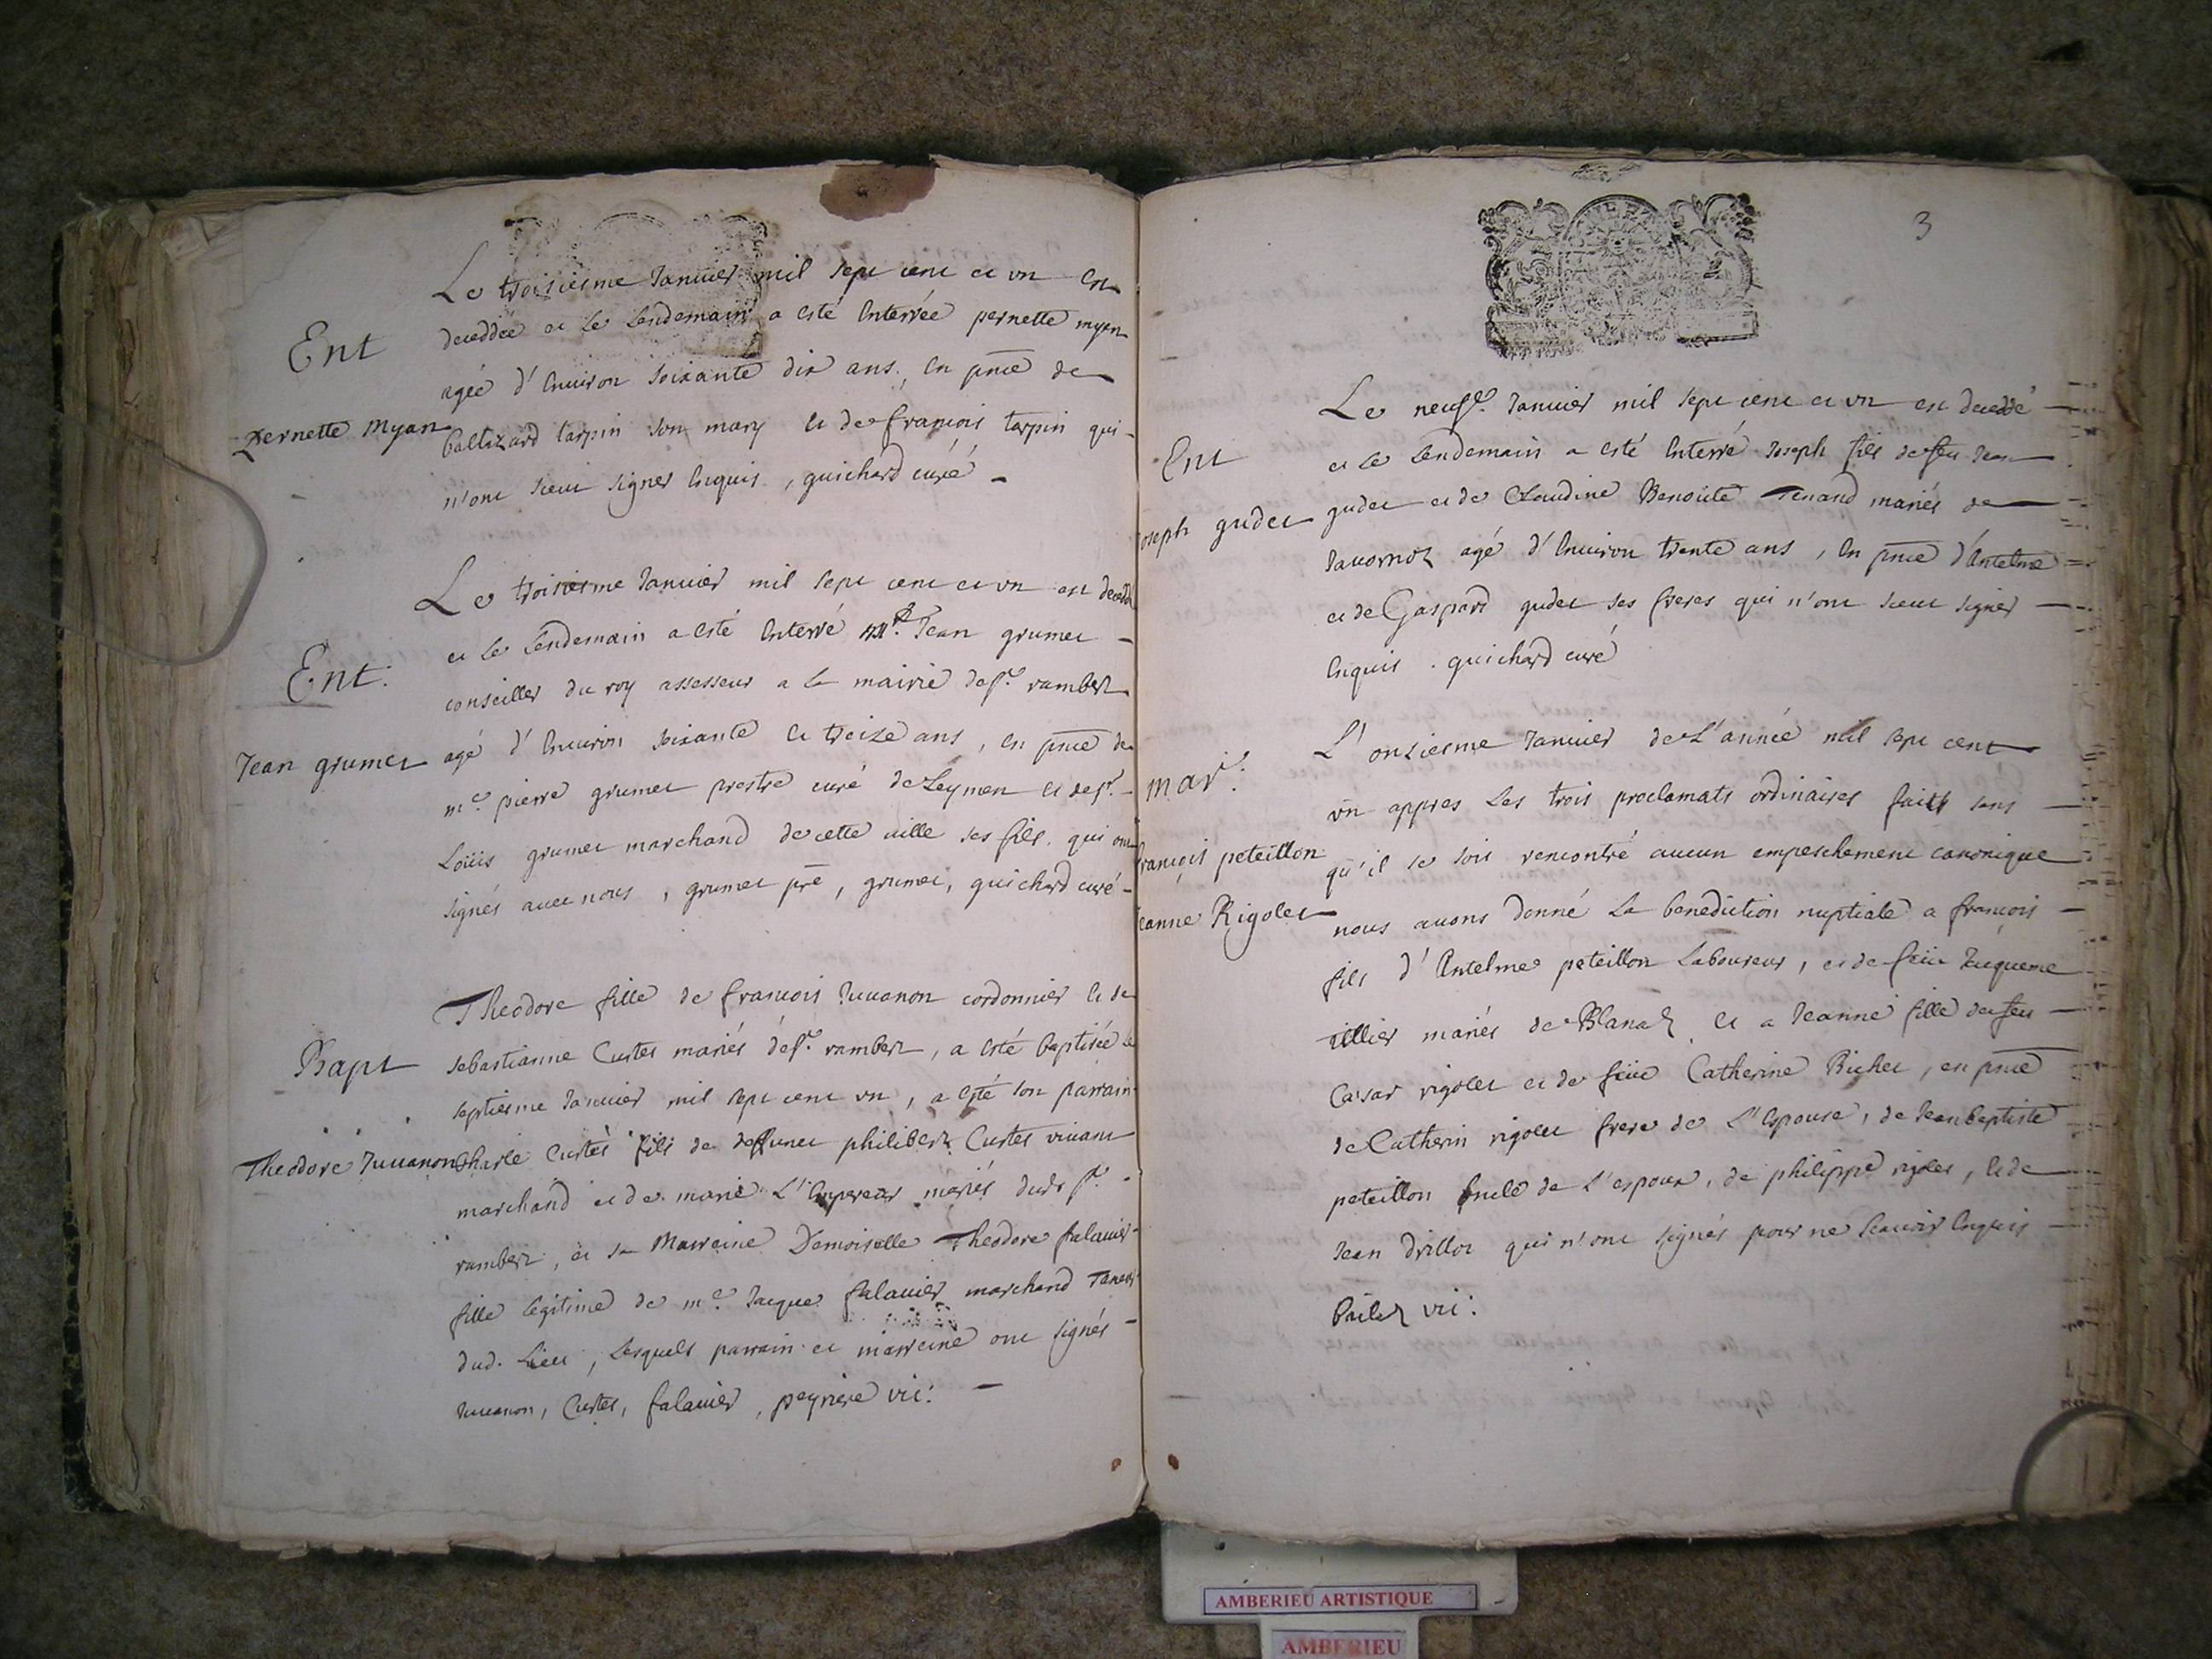 Le troisiesme Januier mil sept cent et vn est
Ent
decedée et le lendemain a esté enterrée pernette myan
agée d'enuiron soixante dix ans, en pnce de
pernette myan
baltazard tarpin son mary et de françois tarpin qui
n'ont sceu signer enquis, guichard curé
Le troisiesme Januier mil sept cent et vn est decedé
et le lendemain a esté enterré Jean grumet
Ent.
conseiller du roy assesseur a la mairie de st rambert
agé d'enuiron soixante et treize ans, en pnce de
Jean grumet
me pierre grumet prestre curé de Leymen et de sr
Loüis grumet marchand de cette uille ses fils qui ont
signés auec nous, grumet pre, grumet, guichard curé
Theodore fille de francois Juuanon cordonnier et de
Bapt
sebastianne Curtet mariés de st rambert, a esté baptisée le
septiesme Januier mil sept cent vn, a esté son parrain
Theodore Juuanon
Charle Curtet fils de deffunct philibert Curtet viuant
marchand et de marie L'Empereur mariés dudt st
rambert, et sa Marreine Demoiselle Theodore falauier
fille legitime de me Jacque falauier marchand Taneur
dud. Lieu, Lesquels parrain et marreine ont signés
Juuanon, Curtet, falauier, peyriere vic:
3
Le neufe Januier mil sept cent et vn est decedé
Ent
et le lendemain a esté enterré Joseph fils de feu Jean
Joseph gudet
gudet et de Claudine Benoite Tenand mariés de
Jauornoz agé d'enuiron trente ans, en pnce d'Antelme
et de Gaspard gudet ses freres qui n'ont sceu signer
enquis. guichard curé
L'onziesme Januier de L'année mil sept cent
mar:
vn appres les trois proclamats ordinaires faits sans
françois peteillon
qu'il se soit rencontré aucun empeschement canonique
Jeanne Rigolet
nous auons donné la benediction nuptiale a françois
fils d'Antelme peteillon Laboureur, et de feüe Jacqueme
tillier mariés de Blanaz et a Jeanne fille de feu
Cæsar rigolet et de feüe Catherine Bichet, en pnce
de Catherin rigolet frere de L'Espouse, de Jean baptiste
peteillon oncle de L'espoux, de philippe rigolet, et de
Jean Drillot qui n'ont signés pour ne scauoir enquis
vic:
AMBERIEU ARTISTIQUE
AMBERIEU